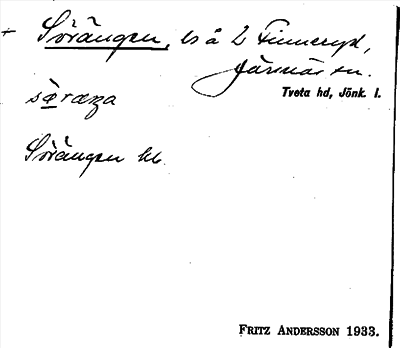 + Sörängen, ls å 2 Finneryd,
Järsnäs sn.
Tveta hd, Jönk. l.
Sörängen
FRITZ ANDERSSON 1933.